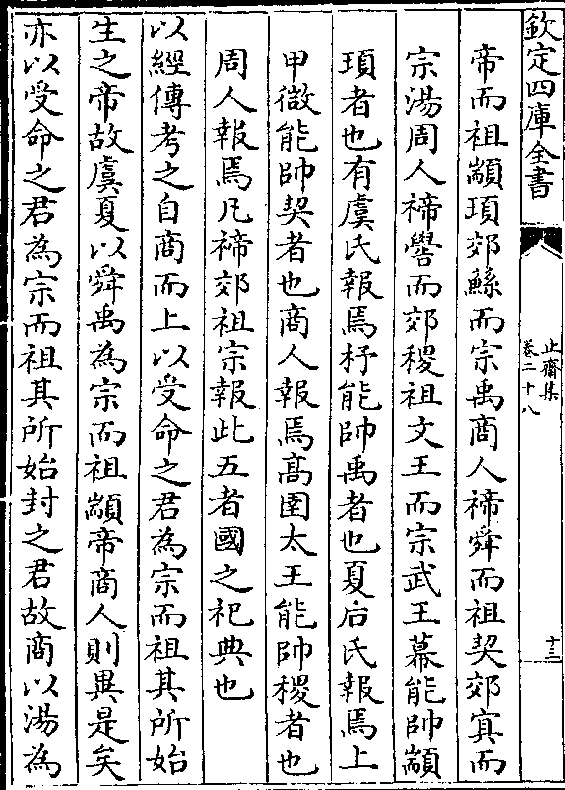 欽定四庫全書
止齋集
卷二十八
十三
帝而祖顓頊郊鯀而宗禹商人禘舜而祖契郊㝠而
宗湯周人禘嚳而郊稷祖文王而宗武王幕能帥顓
頊者也有虞氏報焉杼能帥禹者也夏后氏報焉上
甲微能帥契者也商人報焉高圉太王能帥稷者也
周人報焉凡禘郊祖宗報此五者國之祀典也
以經傳考之自商而上以受命之君為宗而祖其所始
生之帝故虞夏以舜禹為宗而祖顓帝商人則異是矣
亦以受命之君為宗而祖其所始封之君故商以湯為